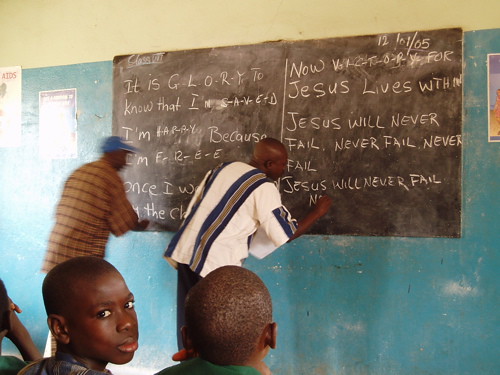 AIDS
Class VII
It is G-L-O-R-Y To
know that I'm S-A-V-E-D
I'm H-A-P-P-Y Because
I'm F-R-E-E
Once I
the
12/01/05
Now V-I-C-T-O-R-Y FOR
JESUS LIVES WITHIN
JESUS WILL NEVER
FAIL, NEVER FAIL NEVER
FAIL
JESUS WILL NEVER FAIL